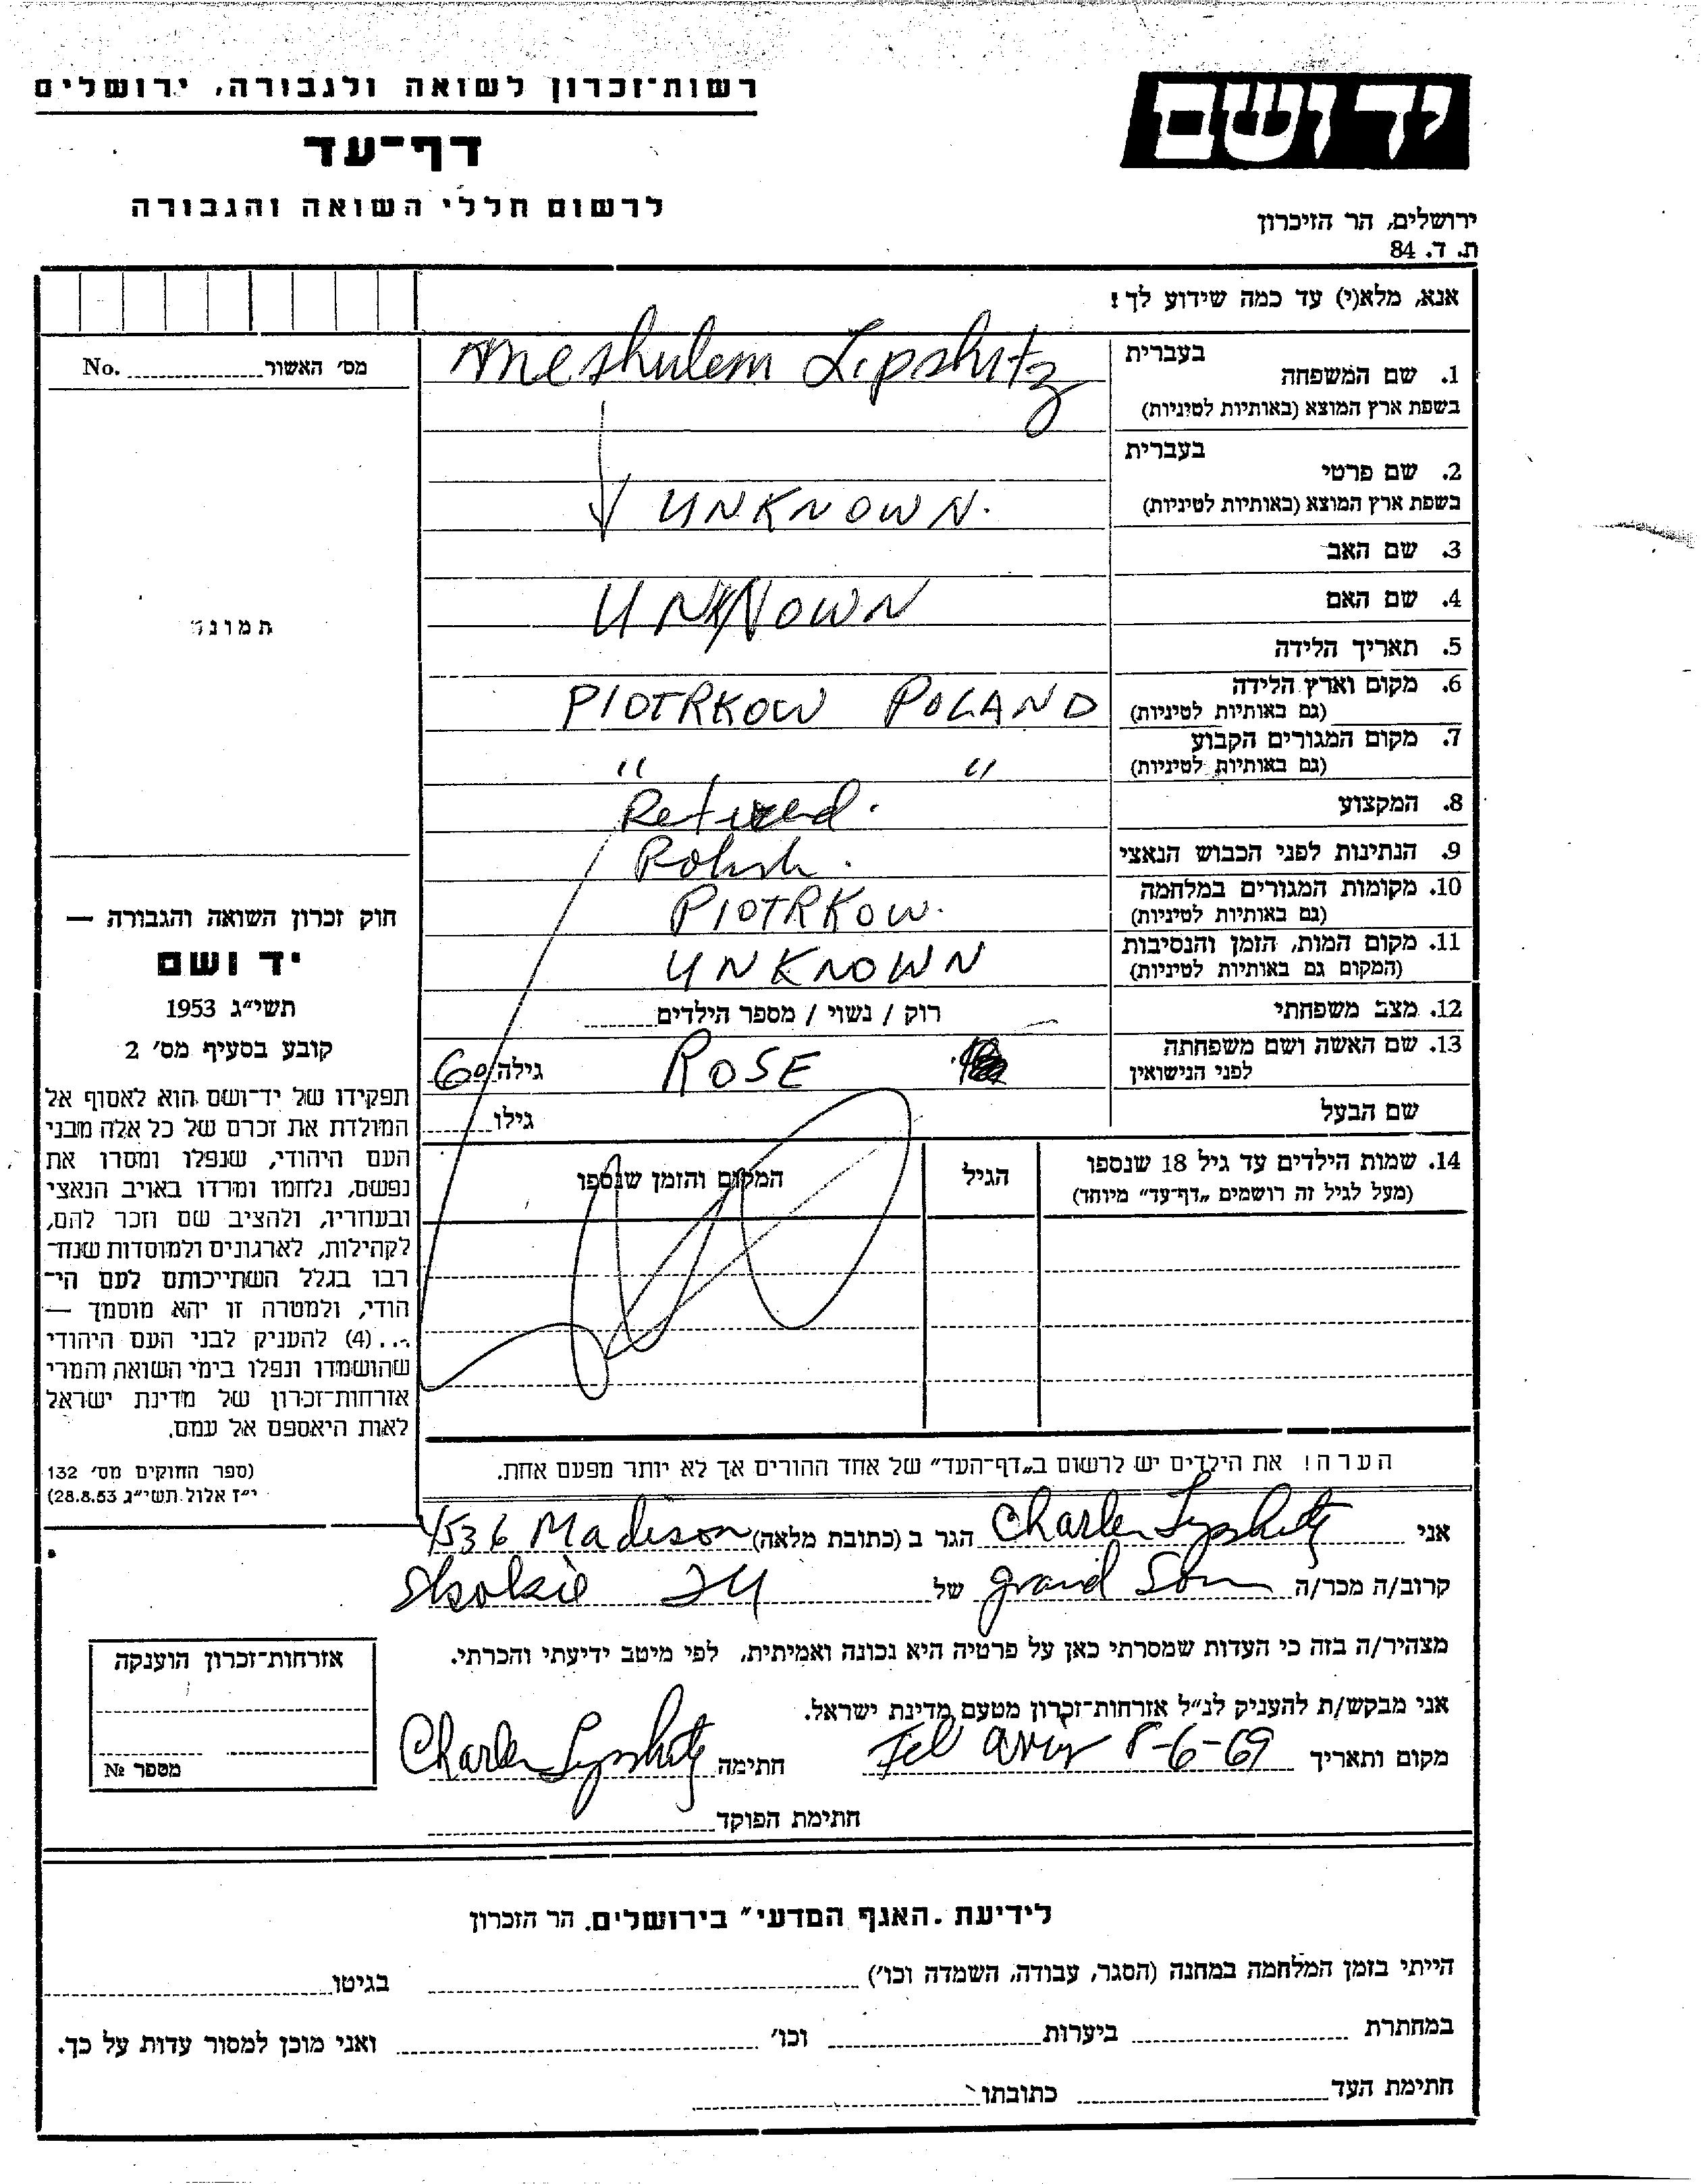 רשות־זכרון לשואה ולגבורה, ירושלים
דף־עד
לרשום חללי השואה והגבורה
יד ושם
ירושלים, הר הזיכרון
ת. ד. 84
אנא, מלא(י) עד כמה שידוע לך!
מס׳ האשור No.
תמונה
בעברית
1. שם המשפחה Meshulem Lipshitz
בשפת ארץ המוצא (באותיות לטיניות)
בעברית
2. שם פרטי
בשפת ארץ המוצא (באותיות לטיניות) UNKNOWN.
3. שם האב
4. שם האם UNKNOWN
5. תאריך הלידה
6. מקום וארץ הלידה
(גם באותיות לטיניות) PIOTRKOW POLAND
7. מקום המגורים הקבוע
(גם באותיות לטיניות) " "
8. המקצוע Retired.
9. הנתינות לפני הכבוש הנאצי Polish.
10. מקומות המגורים במלחמה
(גם באותיות לטיניות) PIOTRKOW.
11. מקום המות, הזמן והנסיבות
(המקום גם באותיות לטיניות) UNKNOWN
12. מצב משפחתי רוק / נשוי / מספר הילדים
13. שם האשה ושם משפחתה
לפני הנישואין ROSE גילה 60
שם הבעל גילו
14. שמות הילדים עד גיל 18 שנספו הגיל המקום והזמן שנספו
(מעל לגיל זה רושמים „דף־עד״ מיוחד)
הערה! את הילדים יש לרשום ב„דף־העד״ של אחד ההורים אך לא יותר מפעם אחת.
חוק זכרון השואה והגבורה —
יד ושם
תשי״ג 1953
קובע בסעיף מס׳ 2
תפקידו של יד־ושם הוא לאסוף אל
המולדת את זכרם של כל אלה מבני
העם היהודי, שנפלו ומסרו את
נפשם, נלחמו ומרדו באויב הנאצי
ובעוזריו, ולהציב שם וזכר להם,
לקהילות, לארגונים ולמוסדות שנח־
רבו בגלל השתייכותם לעם הי־
הודי, ולמטרה זו יהא מוסמך —
...(4) להעניק לבני העם היהודי
שהושמדו ונפלו בימי השואה והמרי
אזרחות־זכרון של מדינת ישראל
לאות היאספם אל עמם.
(ספר החוקים מס׳ 132
י״ז אלול תשי״ג 28.8.53)
אני Charles Lipshitz הגר ב (כתובת מלאה) 4536 Madison
קרוב/ה מכר/ה grand Son של Skokie Ill
מצהיר/ה בזה כי העדות שמסרתי כאן על פרטיה היא נכונה ואמיתית, לפי מיטב ידיעתי והכרתי.
אני מבקש/ת להעניק לנ״ל אזרחות־זכרון מטעם מדינת ישראל.
מקום ותאריך Tel Aviv 8-6-69 חתימה Charles Lipshitz
חתימת הפוקד
אזרחות־זכרון הוענקה
מספר №
לידיעת „האגף המדעי״ בירושלים. הר הזכרון
הייתי בזמן המלחמה במחנה (הסגר, עבודה, השמדה וכו׳) בגיטו
במחתרת ביערות וכו׳ ואני מוכן למסור עדות על כך.
חתימת העד כתובתו